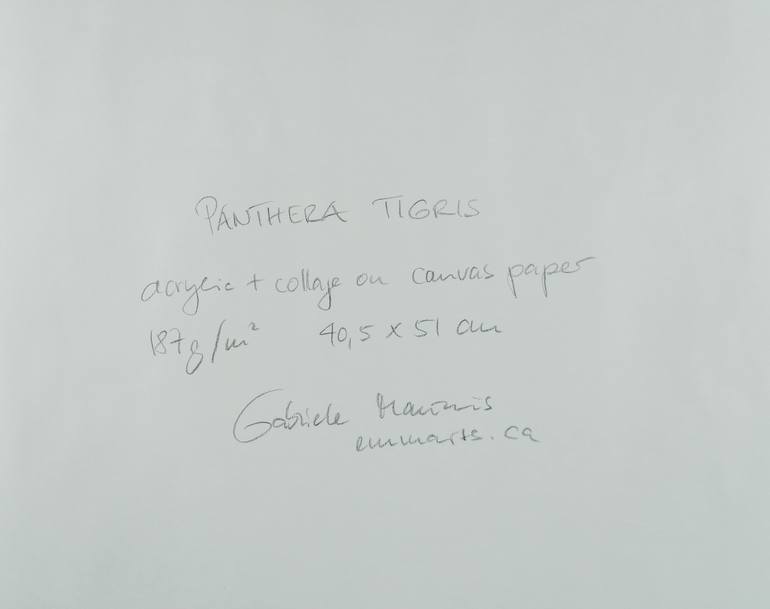 PANTHERA TIGRIS
acrylic + collage on canvas paper
187g/m² 40,5 x 51 cm
Gabriele
emmarts.ca